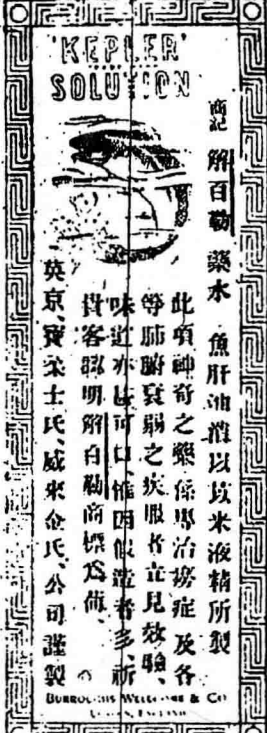 'KEPLER'
SOLUTION
商記 解百勒 藥水 魚肝油消以苡米液精所製
此項神奇之藥係專治癆症及各
等肺腑衰弱之疾服者立見效驗、
味道亦甚可口、惟因假造者多、祈
貴客認明解百勒商標爲佈、
英京、寶柔士氏、威來金氏、公司謹製
BURROUGHS WELLCOME & Co
LONDON, ENGLAND